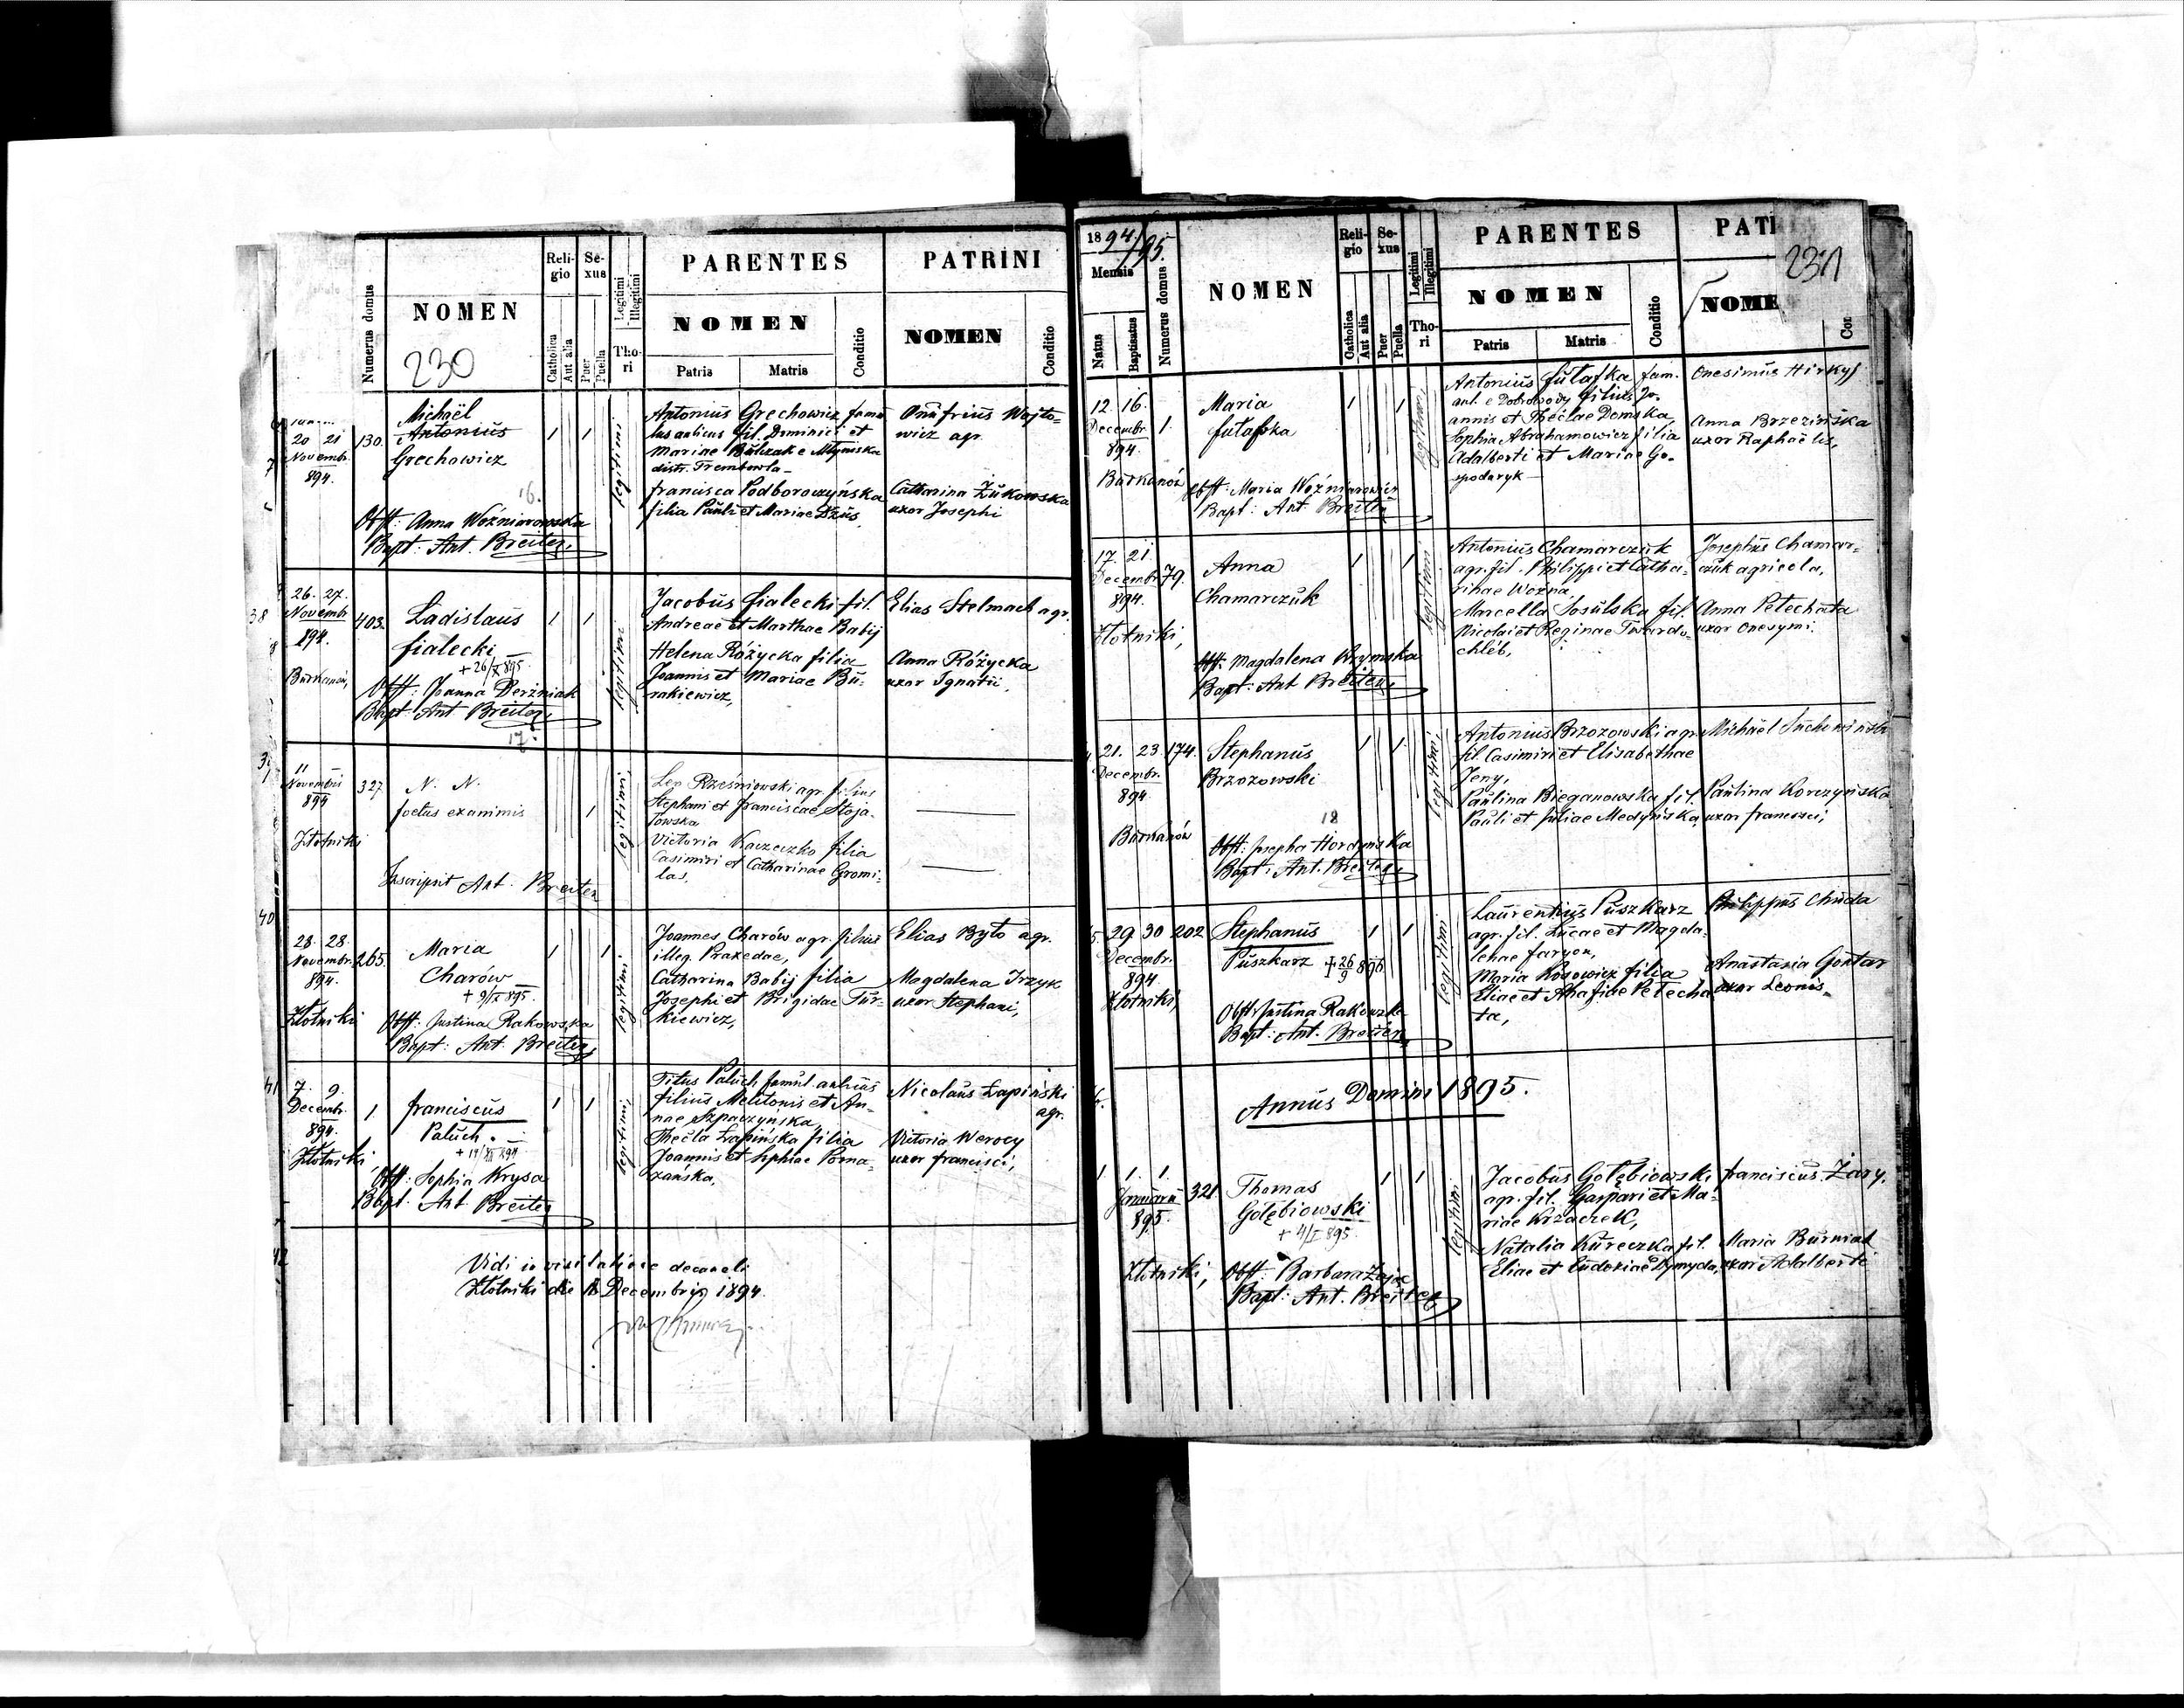 Numerus domus
NOMEN
230
Religio
Catholica
Aut alia
Sexus
Puer
Puella
Legitimi
Illegitimi
Thori
PARENTES
NOMEN
Patris
Matris
Conditio
PATRINI
NOMEN
Conditio
20 21
Novembr.
894.
130.
Michaël
Antonius
Grechowicz
1 1
legitimi
16.
Obst: Anna Woźniarowska
Bapt: Ant. Breiter
Antonius Grechowicz famu
lus aulicus fil. Dominici et
Mariae Bulczak e Młyniska
distr. Trembowla
Francisca Podboroczyńska
filia Pauli et Mariae Dzús
Onufrius Wojto=
wicz agr.
Catharina Żukowska
uxor Josephi
38
26. 27.
Novembr.
894.
Burkanów,
403.
Ladislaus
Fialecki
+ 26/X 895.
1 1
legitimi
Obst: Joanna Derżniak
Bapt: Ant Breiter
17.
Jacobus Fialecki fil.
Andreae et Marthae Babij
Helena Różycka filia
Joannis et Mariae Bu=
rakiewicz,
Elias Stelmach agr.
Anna Różycka
uxor Ignatii,
11
Novembris
894
Złotniki
327
N. N.
foetus exanimis
1
legitimi
Inscripsit Ant. Breiter
Leo Rześniowski agr. filius
Stephani et Franciscae Stoja=
łowska
Victoria Kaczeczko filia
Casimiri et Catharinae Gromi=
las,
40
28. 28.
Novembr.
894.
Złotniki
265.
Maria
Charów
+ 9/IX 895.
1 1
legitimi
Obst: Justina Rakowska
Bapt: Ant. Breiter
Joannes Charów agr. filius
illeg. Praxedae,
Catharina Babij filia
Josephi et Brigidae Tur=
kiewicz,
Elias Byto agr.
Magdalena Irzyk
uxor Stephani,
41
7. 9.
Decembr.
894.
Złotniki,
1.
Franciscus
Paluch.
+ 14/XII 894
1 1
legitimi
Obst: Sophia Krysa
Bapt: Ant Breiter
Titus Paluch famul. aulicus
filius Melitonis et An=
nae Szpaczyńska,
Thecla Łapińska filia
Joannis et Sophiae Poma=
zańska,
Nicolaus Łapiński
agr.
Victoria Werocy
uxor Francisci,
42
Vidi in visitatione decanali
Złotniki die Decembris 1894.
1894/95.
Mensis
Natus
Baptisatus
Numerus domus
NOMEN
Religio
Catholica
Aut alia
Sexus
Puer
Puella
Legitimi
Illegitimi
Thori
PARENTES
NOMEN
Patris
Matris
Conditio
PATI
NOME
Con
231
12. 16.
Decembr.
894.
Burkanów
1.
Maria
Futafka
1 1
legitimi
Obst: Maria Woźniarowicz
Bapt: Ant Breiter
Antonius Futafka fam.
aul. e Dobrowody filius Jo=
annis et Theclae Domska,
Sophia Abrahamowicz filia
Adalberti et Mariae Go=
spodaryk
Onesimus Hirkyj
Anna Brzezińska
uxor Raphaëlis,
17. 21.
Decembr.
894.
Złotniki,
79.
Anna
Chamarczuk
1 1
legitimi
Obst: Magdalena Krzymska
Bapt: Ant Breiter
Antonius Chamarczuk
agr. fil. Philippi et Catha=
rinae Woźna,
Marcella Sosulska fil.
Nicolai et Reginae Twardo=
chlèb,
Josephus Chamar=
czuk agricola,
Anna Petechata
uxor Onesymi.
21. 23.
Decembr.
894.
Burkanów
174.
Stephanus
Brzozowski
1 1
legitimi
18
Obst: Josepha Hordyńska
Bapt: Ant. Breiter
Antonius Brzozowski agr.
fil. Casimiri et Elisabethae
Jeny,
Paulina Bieganowska fil.
Pauli et Juliae Medyńska,
Michaël
Paulina Korczyńska
uxor Francisci,
29 30
Decembr.
894
Złotniki,
202
Stephanus
Puszkarz + 26/9 896
1 1
legitimi
Obst: Justina Rakowska
Bapt: Ant. Breiter
Laurentius Puszkarz
agr. fil. Lucae et Magda=
lenae Faryon,
Maria Kosowicz filia
Eliae et Ahafiae Petecha
ta,
Philippus Chuda
Anastasia Gontar
uxor Leonis.
Annus Domini 1895.
1.
1. 1.
Januarii
895.
Złotniki,
321
Thomas
Gołębiowski
+ 4/I 895
1 1
legitimi
Obst: Barbara Zając
Bapt: Ant. Breiter
Jacobus Gołębiowski
agr. fil. Gaspari et Ma=
riae Krzaczek,
Natalia Kureczka fil.
Eliae et Eudoxiae Dymyda,
Franciscus Żary.
Maria Burniak
uxor Adalberti